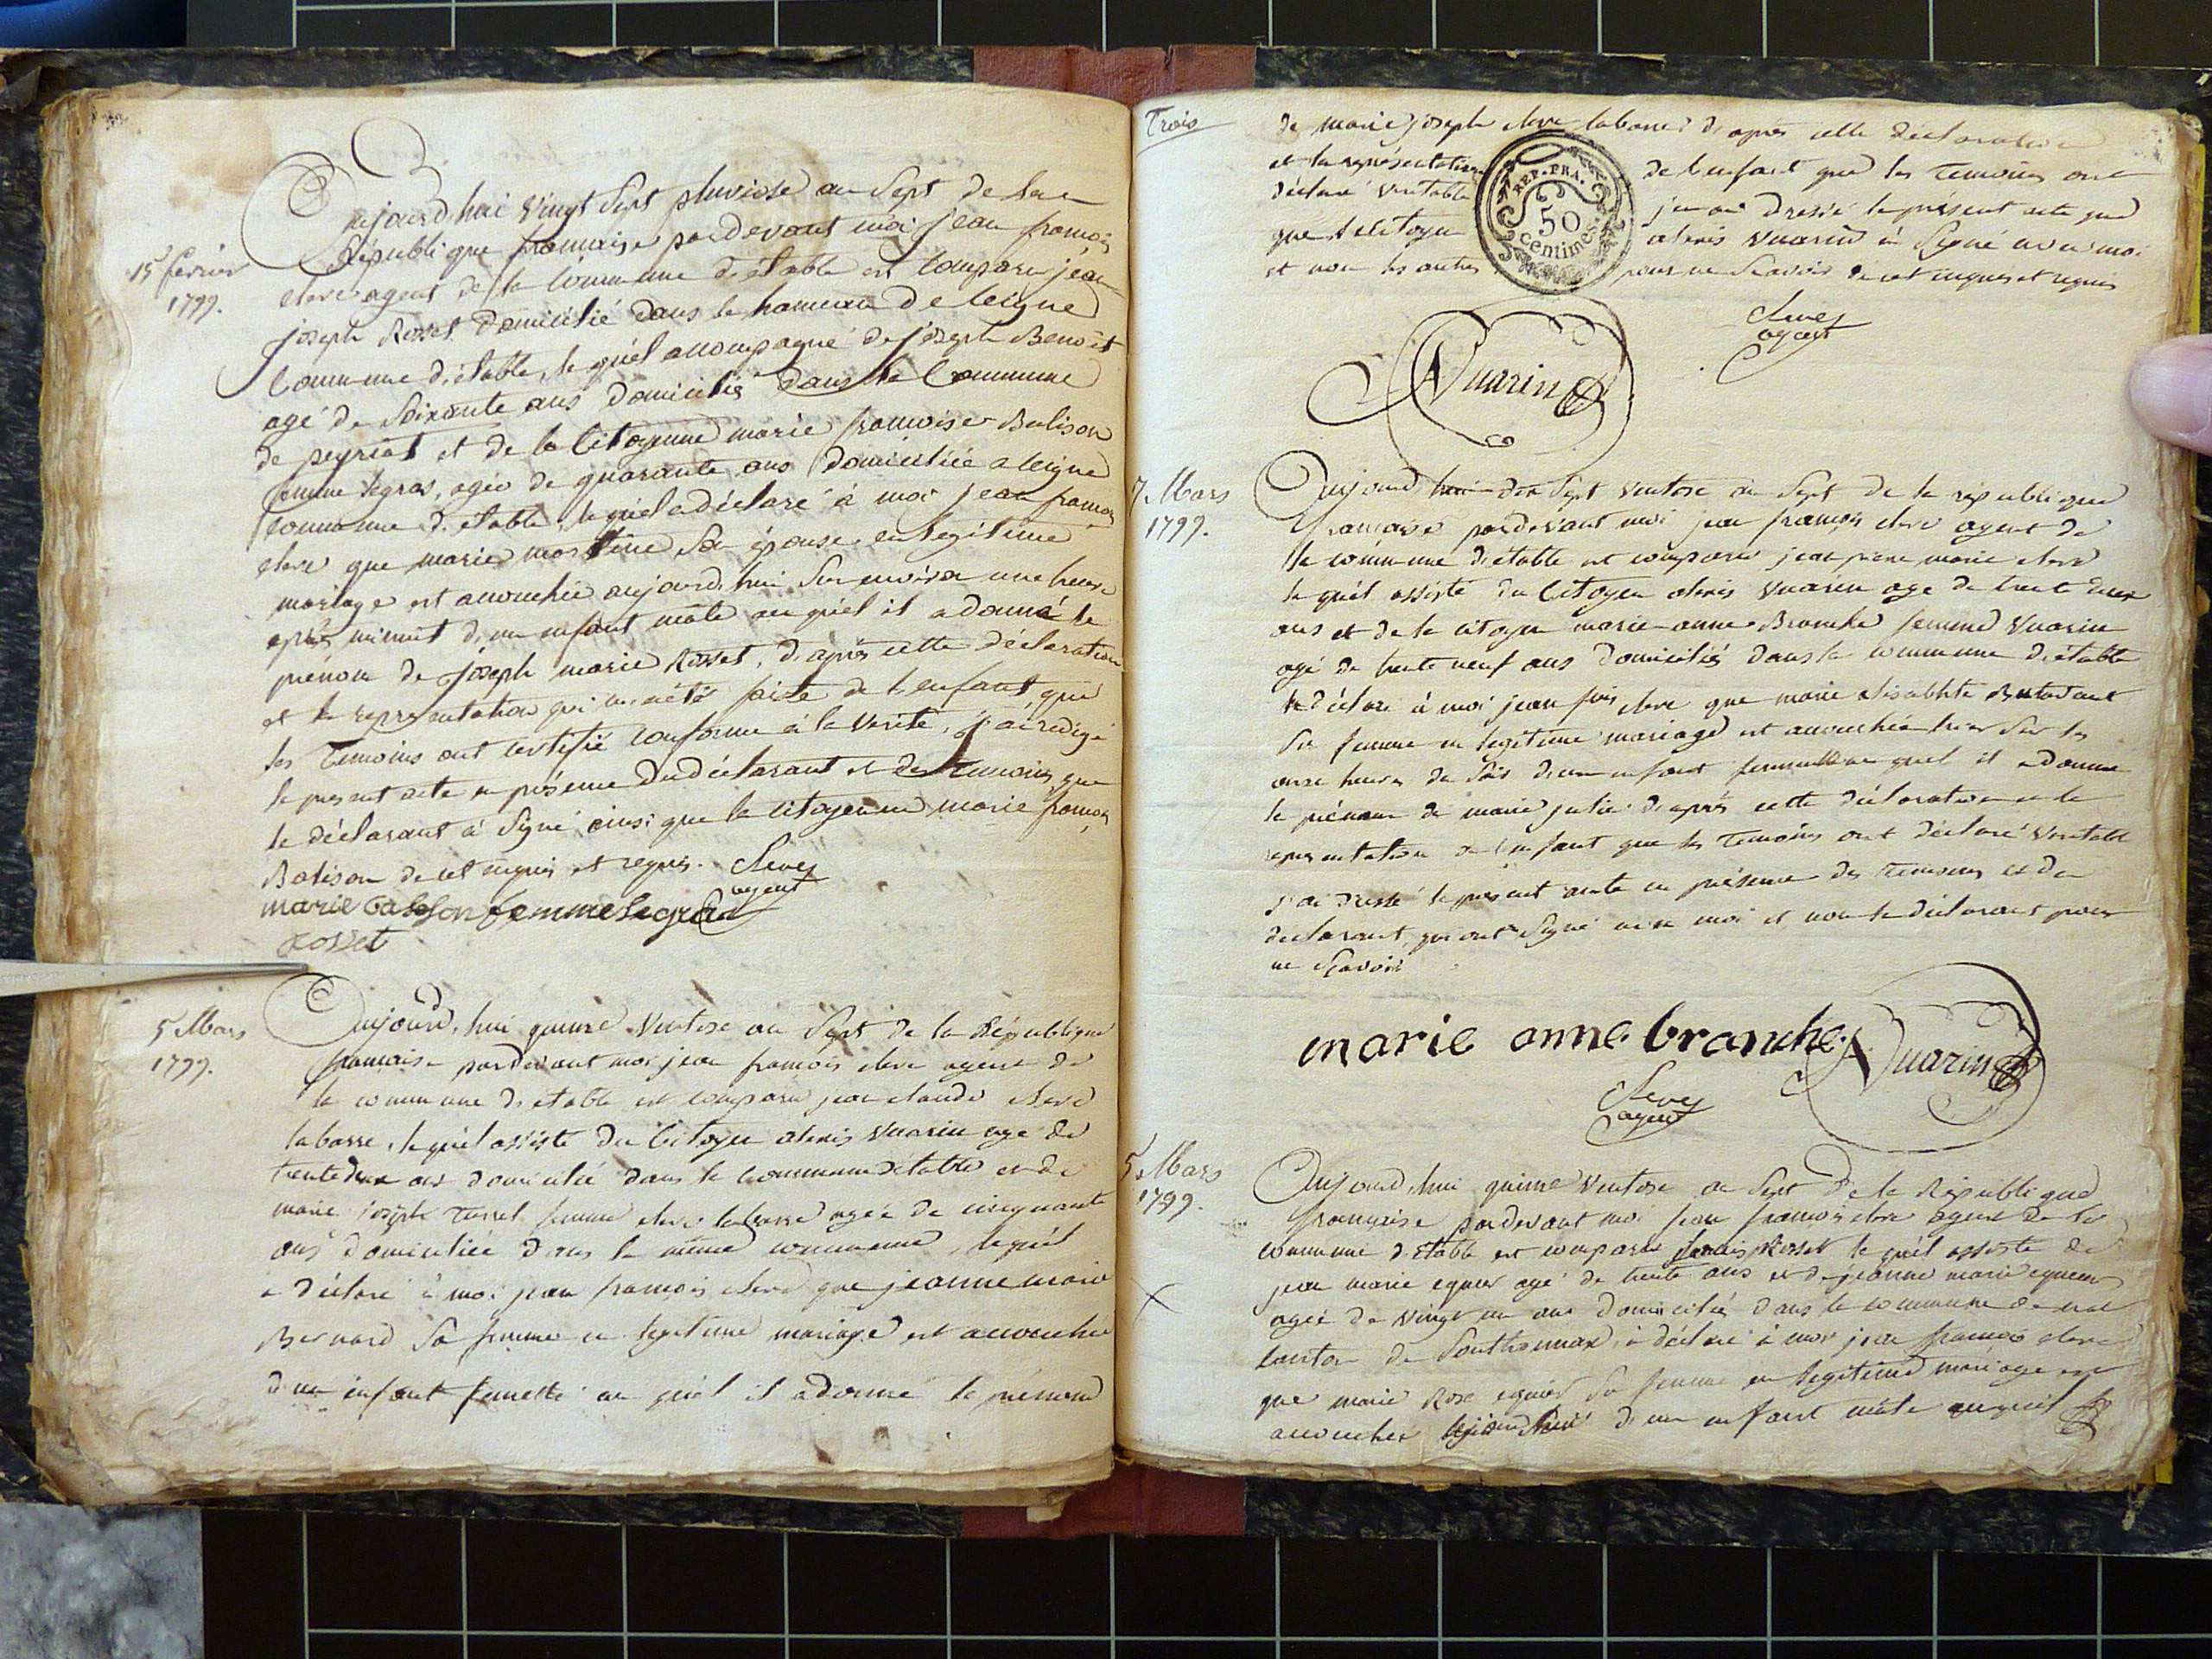 Aujourd'hui vingt sept pluviose an Sept de la
République française pardevant moi jean françois
15 fevrier
1799.
cleve agent de la commune d'étable est comparu jean
joseph Rosset domicilié dans le hameau de leigne
Commune d'étable, le quel accompagné de joseph Benoit
agé de Soixante ans domicilié dans la Commune
de peyriat et de la Citoyenne marie françoise Balison
femme legras, agée de quarante ans domiciliée a leigne
commune d'étable, le quel a déclaré à moi jean françois
cleve que marie son épouse en légitime
mariage est accouchée aujourd'hui sur environ une heure
après minuit d'un enfant mâle au quel il a donné le
prénom de joseph marie Rosset, d'après cette déclaration
et la représentation qui m'a été faite de l'enfant, que
les Temoins ont certifié conforme à la Verité, j'ai redigé
le present acte en présence du déclarant et des temoins, que
le déclarant à Signé ainsi que la citoyenne marie françois
Balison de cet enquis et requis. Cleve
agent
marie balison femme legras
rosset
5 Mars
1799.
Aujourd'hui quinze Ventose an Sept de la République
française pardevant moi jean françois cleve agent de
la commune d'étable est comparu jean claude cleve
labarre, le quel assisté du Citoyen alexis Vuarin agé de
trente deux ans domicilié dans la commune d'étable et de
marie joseph femme cleve labarre agée de cinquante
ans domiciliée dans la même commune, lequel
a déclaré à moi jean françois cleve que jeanne marie
Bernard Sa femme en legitime mariage est accouchée
d'un enfant femelle au quel il a donné le prénom
Trois
de marie joseph cleve labarre d'après cette déclaration
et la représentation de l'enfant que les temoins ont
déclaré véritable j'en ai dressé le présent acte que
que le Citoyen alexis Vuarin à Signé avec moi
et non les autres pour ne Scavoir de cet enquis et requis
REP. FRA.
50
centimes.
Cleve
agent
A Vuarin
7 Mars
1799.
Aujourd'hui dix Sept Ventose an Sept de la république
française pardevant moi jean françois cleve agent de
la commune d'étable est comparu jean pierre marie cleve
le quel assisté du Citoyen alexis Vuarin agé de trente deux
ans et de la citoyen marie anne Branche femme Vuarin
agé de trente neuf ans domiciliés dans la commune d'étable
a déclaré à moi jean fois cleve que marie
Sa femme en legitime mariage est accouchée hier Sur les
onze heures du Soir d'un enfant femelle au quel il a donné
le prénom de marie julie d'après cette déclaration et la
representation de l'enfant que les temoins ont déclaré Veritable
j'ai dressé le présent acte en présence des temoins et du
declarant, qui ont Signé avec moi et non le déclarant pour
ne Scavoir
marie anne branche A Vuarin
Cleve
agent
5 Mars
1799.
Aujourd'hui quinze Ventose an Sept de la République
française pardevant moi jean francois cleve agent de la
commune d'étable est comparu Rosset le quel assisté de
jean marie eguier agé de trente ans et de jeanne marie eguier
agée de vingt un ans domiciliés dans la commune de
canton de Sonthonnax, a déclaré à moi jean françois cleve
que marie Rose eguier Sa femme en legitime mariage est
accouchée aujourd'hui d'un enfant mâle auquel